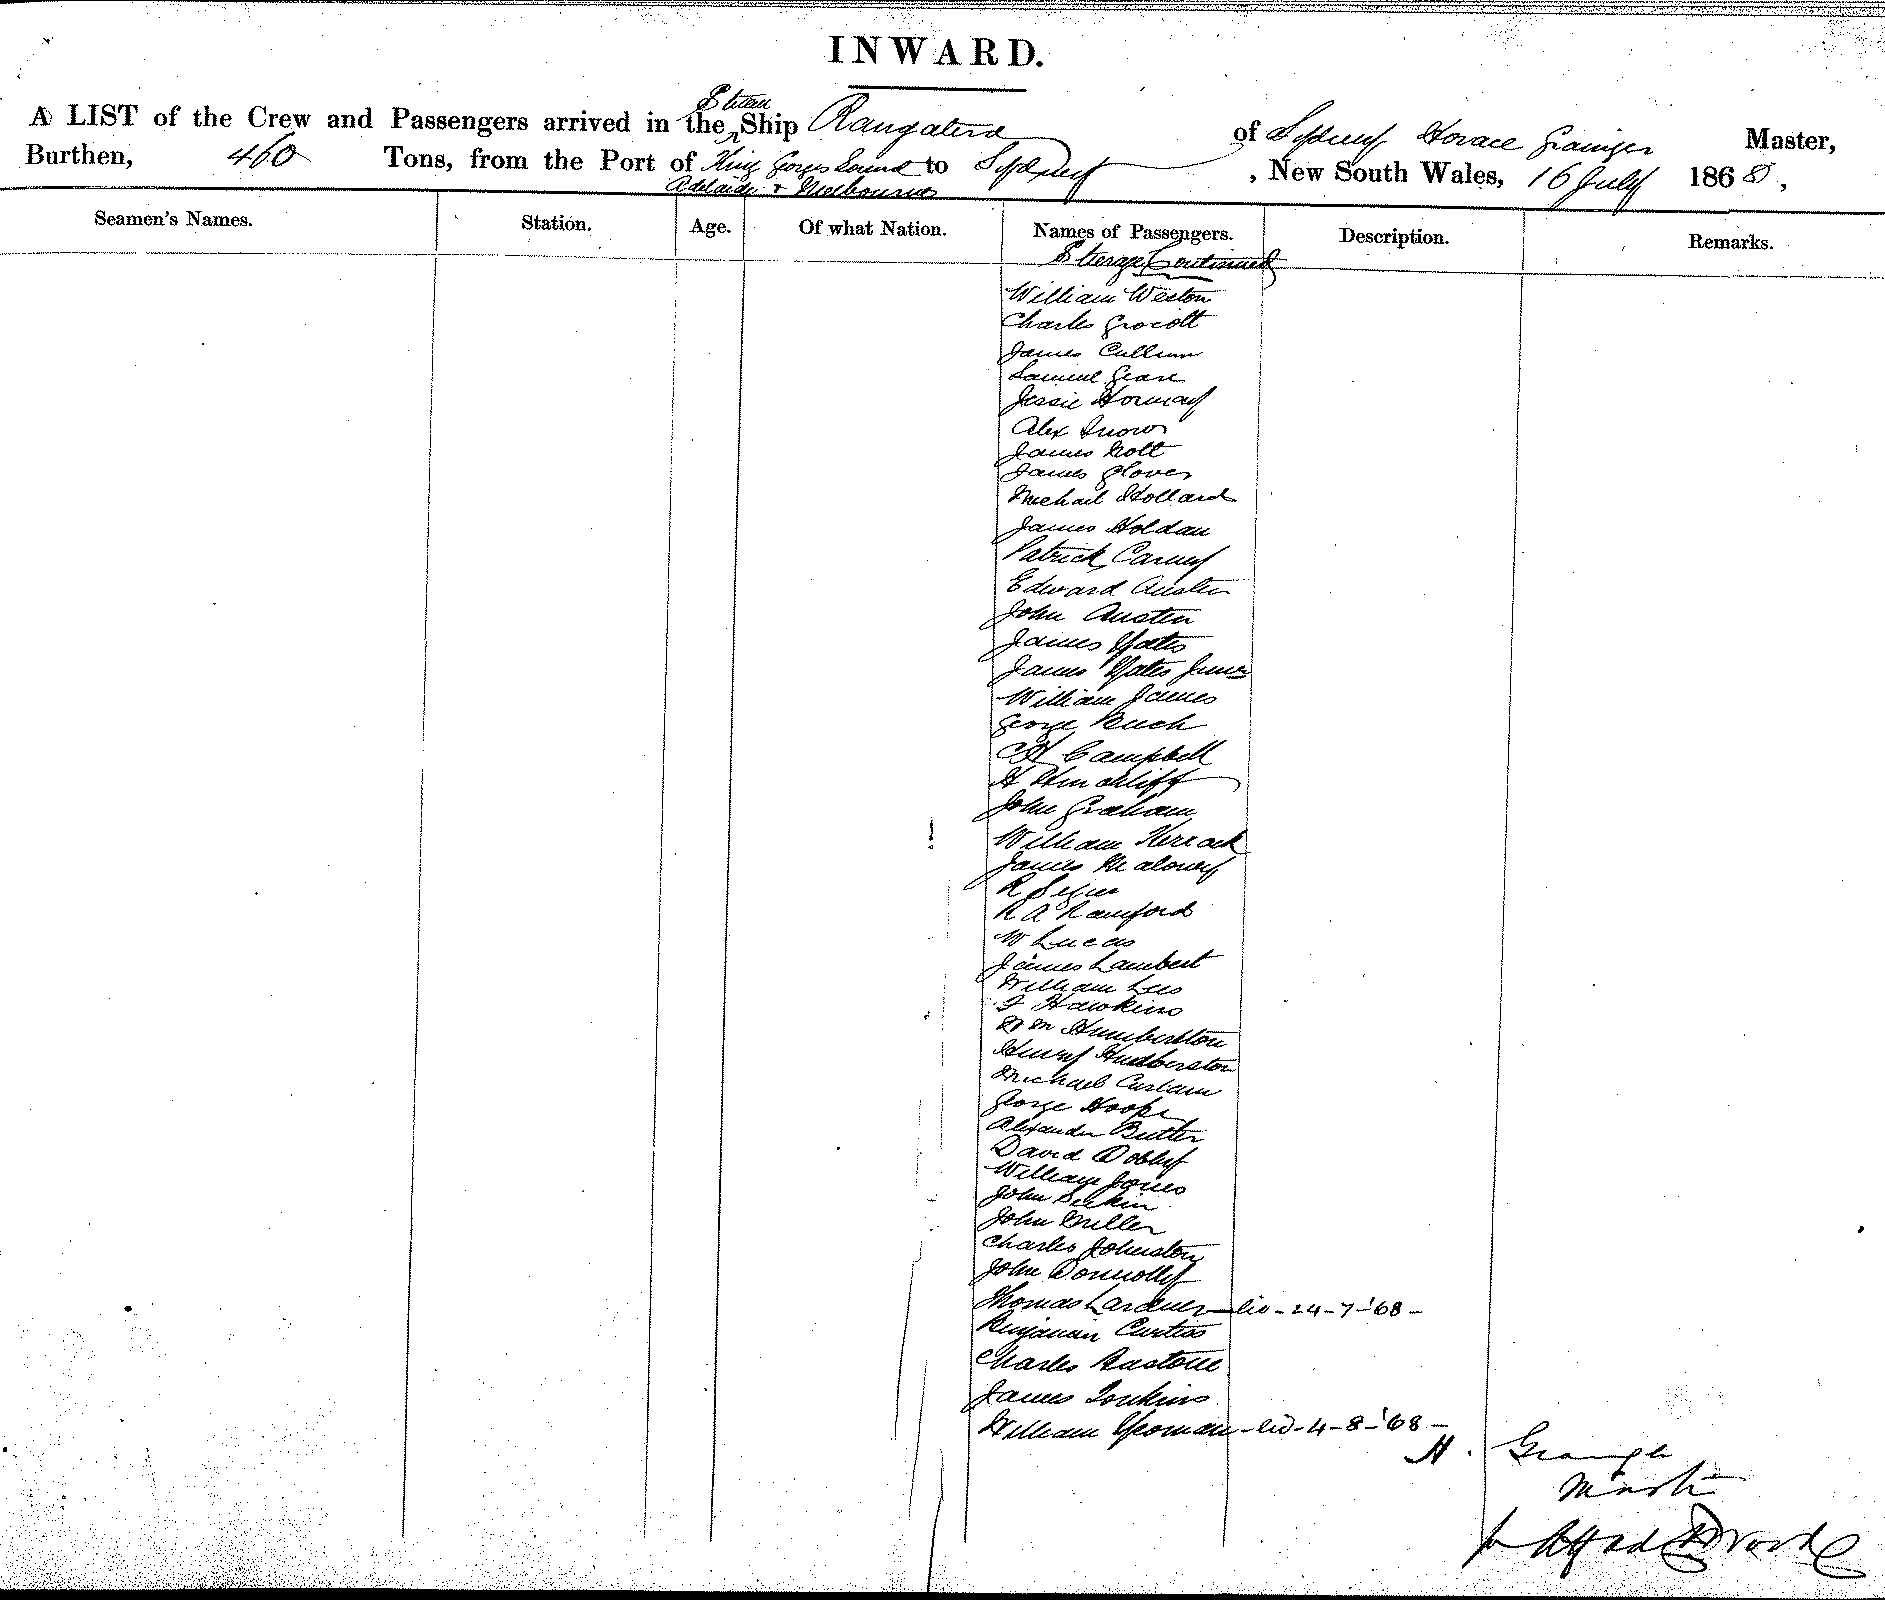 INWARD.
A LIST of the Crew and Passengers arrived in the Steam Ship Rangatira of Sydney Horace Grainger Master,
Burthen, 460 Tons, from the Port of King Georges Sound Adelaide & Melbourne to Sydney, New South Wales, 16 July 1868,
Seamen's Names. Station. Age. Of what Nation. Names of Passengers. Description. Remarks.
Steerage Continued
William Weston
Charles Grocott
James Cullum
Samuel
Jessie
Alex Snow
James Nott
James Glover
Michail Hollard
James Holdan
Patrick Carney
Edward Austen
John Austen
James Yates
James Yates Junr
William James
George
Campbell
H Hinchliff
John Graham
William Kerrack
James Maloney
R
R A Ramford
W Lucas
James Lambert
William Lees
Hawkins
Wm Humberston
Henry Hudberston
Michael
George Hooke
Alexander Butler
David Dobbyf
William Jones
John
John Miller
Charles Johnston
John Donnolly
Thomas Lardner - lic - 24-7-'68-
Benjamin Curtiss
Charles Eastone
James Jonkins
William Yeoman - lic - 4-8-'68-
H. Grainger
Master
p Alfred